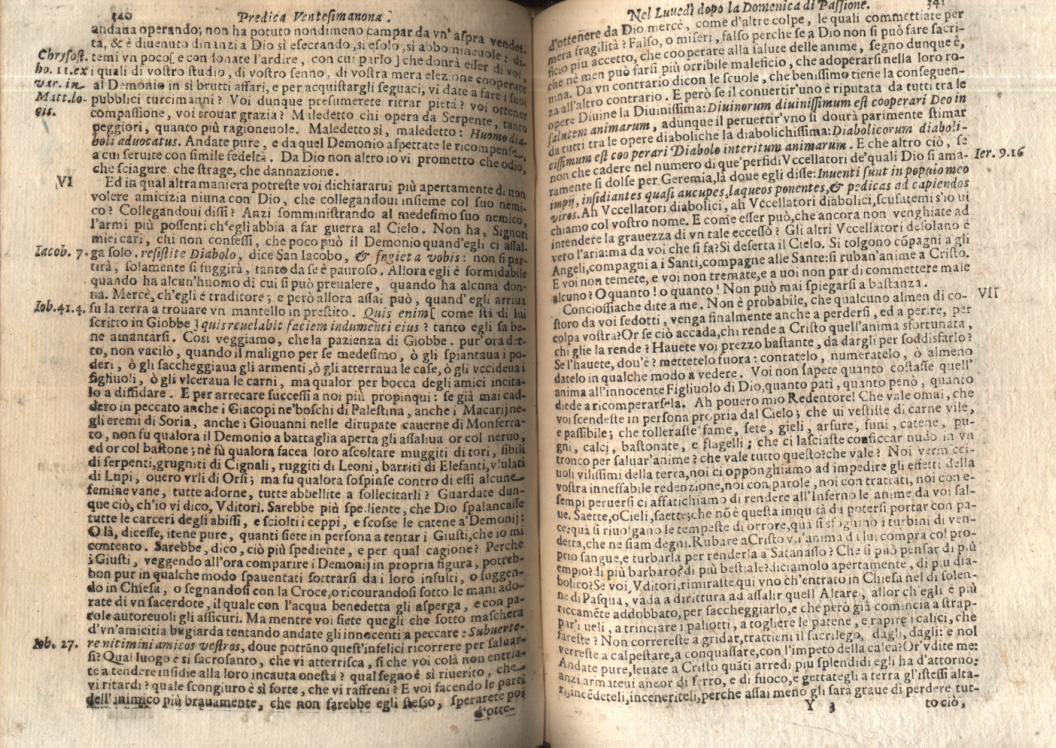 340 Predica Ventesimanona.
andaua operando; non ha potuto nondimeno campar da vn' aspra vendet-
ta, & è diuenuto dinanzi a Dio sì esecrando, sì esoso, sì abbomineuole: di-
Chrysost. temi vn poco[e con sonate l'ardire, con cui parlo] che dourà esser di voi,
ho. 11. ex i quali di vostro studio, di vostro senno, di vostra mera elezione cooperate
var. in al Demonio in sì brutti affari, e per acquistargli seguaci, vi date a fare i suoi
Matt. lo- pubblici turcimanni? Voi dunque presumerete ritrar pietà? voi ottener
qis. compassione, voi trouar grazia? Maledetto chi opera da Serpente, tanto
peggiori, quanto più ragioneuole. Maledetto sì, maledetto: Huomo dia-
boli aduocatus. Andate pure, e da quel Demonio aspettate le ricompense,
a cui seruite con simile fedeltà. Da Dio non altro io vi prometto che odio,
che sciagure, che strage, che dannazione.
VI Ed in qual altra maniera potreste voi dichiararui più apertamente di non
volere amicizia niuna con Dio, che collegandoui insieme col suo nemi-
co? Collegandoui dissi? Anzi somministrando al medesimo suo nemico,
l'armi più possenti ch'egli abbia a far guerra al Cielo. Non ha, Signori
miei cari, chi non confessi, che poco può il Demonio quand'egli ci assal-
Iacob. 7. ga solo. resistite Diabolo, dice San Iacobo, & fugiet a vobis: non si par-
tirà, solamente si fuggirà, tanto da se è pauroso. Allora egli è formidabile
quando ha alcun'huomo di cui si può preualere, quando ha alcuna don-
na. Mercè, ch'egli è traditore; e però allora assai può, quand' egli arriua
Iob. 41. 4. su la terra a trouare vn mantello in prestito. Quis enim[ come sta di lui
scritto in Giobbe] quis reuelabit faciem indumenti eius? tanto egli sa be-
ne amantarsi. Così veggiamo, che la pazienza di Giobbe. pur'ora det-
to, non vacilò, quando il maligno per se medesimo, ò gli spiantaua i po-
deri, ò gli saccheggiaua gli armenti, ò gli atterraua le case, ò gli vccideua i
figliuoli, ò gli vlceraua le carni, ma qualor per bocca degli amici incita-
lo a diffidare. E per arrecare successi a noi più propinqui: se già mai cad-
dero in peccato anche i Giacopi ne' boschi di Palestina, anche i Macarij ne-
gli eremi di Soria, anche i Giouanni nelle dirupate cauerne di Monserra-
to, non fu qualora il Demonio a battaglia aperta gli assaliua or col neruo,
ed or col bastone; nè fù qualora facea loro ascoltare muggiti di tori, sibili
di serpenti, grugniti di Cignali, ruggiti di Leoni, barriti di Elefanti, vlulati
di Lupi, ouero vrli di Orsi; ma fu qualora sospinse contro di essi alcune
femine vane, tutte adorne, tutte abbellite a sollecitarli? Guardate dun-
que ciò, ch'io vi dico, Vditori. Sarebbe più spediente, che Dio spalancasse
tutte le carceri degli abissi, e sciolti i ceppi, e scosse le catene a' Demonij:
Olà, dicesse, itene pure, quanti siete in persona a tentar i Giusti, che io mi
contento. Sarebbe, dico, ciò più spediente, e per qual cagione? Perchè
i Giusti, veggendo all'ora comparire i Demonij in propria figura, potreb-
bon pur in qualche modo spauentati sottrarsi da i loro insulti, o fuggen-
do in Chiesa, o segnandosi con la Croce, o ricourandosi sotto le mani ado-
rate di vn sacerdote, il quale con l'acqua benedetta gli asperga, e con pa-
role autoreuoli gli assicuri. Ma mentre voi siete quegli che sotto maschera
d'vn'amicitia bugiarda tentando andate gli innocenti a peccare: Subuerte-
Iob. 27. re nitimini amicos vestros, doue potrãno quest'infelici ricorrere per saluar-
si? Qual luogo è sì sacrosanto, che vi atterrisca, sì che voi colà non entria-
te a tendere insidie alla loro incauta onestà? qual segno è sì riuerito, che
vi ritardi? quale scongiuro è sì forte, che vi raffreni? E voi facendo le parti
dell'inimico più brauamente, che non farebbe egli stesso, sperarete poi
d'otte-
Nel Luuedì dopo la Domenica di Passione. 341
d'ottenere da Dio mercè, come d'altre colpe, le quali commettiate per
mera fragilità? Falso, o miseri, falso perche se a Dio non si può fare sacri-
ficio più accetto, che cooperare alla salute delle anime, segno dunque è,
che nè men può farsi più orribile maleficio, che adoperarsi nella loro ro-
uina. Da vn contrario dicon le scuole, che benissimo tiene la conseguen-
za all'altro contrario. E però se il conuertir'uno è riputata da tutti tra le
opere Diuine la Diuinissima: Diuinorum diuinissimum est cooperari Deo in
salutem animarum, adunque il peruertir'vno si dourà parimente stimar
da tutti tra le opere diaboliche la diabolichissima: Diabolicorum diaboli-
cissimum est cooperari Diabolo interitum animarum. E che altro ciò, se
non che cadere nel numero di que' perfidi Vccellatori de' quali Dio si ama- Ier. 9. 16
ramente si dolse per Geremia, là doue egli disse: Inuenti sunt in populo meo
impij, insidiantes quasi aucupes, laqueos ponentes, & pedicas ad capiendos
viros. Ah Vccellatori diabolici, ah Vccellatori diabolici, scusatemi s'io vi
chiamo col vostro nome. E come esser può, che ancora non venghiate ad
intendere la grauezza di vn tale eccesso? Gli altri Vccellatori desolano è
vero l'aria: ma da voi che si fa? Si deserta il Cielo. Si tolgono cõpagni a gli
Angeli, compagni a i Santi, compagne alle Sante: si ruban'anime a Cristo.
E voi non temete, e voi non tremate, e a uoi non par di commettere male
alcuno? O quanto! o quanto! Non può mai spiegarsi a bastanza.
Conciossiache dite a me. Non è probabile, che qualcuno almen di co- VII
storo da voi sedotti, venga finalmente a perdersi, ed a perire, per
colpa vostra? Or se ciò accada, chi rende a Cristo quell'anima sfortunata,
chi glie la rende? Hauete voi prezzo bastante, da dargli per soddisfarlo?
Se l'hauete, dou'è? mettetelo fuora: contatelo, numeratelo, ò almeno
datelo in qualche modo a vedere. Voi non sapete quanto costasse quell'
anima all'innocente Figliuolo di Dio, quanto patì, quanto penò, quanto
diede a ricomperarsela. Ah pouero mio Redentore! Che vale omai, che
voi scendeste in persona propria dal Cielo; che ui vestiste di carne vile,
e passibile; che tolleraste fame, sete, gieli, arsure, funi, catene, pu-
gni, calci, bastonate, e flagelli; che ci lasciaste conficcar nudo in vn
tronco per saluar'anime? che vale tutto questo? che vale? Noi vermicci-
uoli vilissimi della terra, noi ci opponghiamo ad impedire gli effetti della
vostra inneffabile redenzione, noi con parole, noi con trattati, noi con e-
sempi peruersi ci affatichiamo di rendere all'Inferno le anime da voi sal-
ue. Saette, o Cieli, saette; che nõ è questa iniquità da potersi portar con pa-
ce: quà si riuolgano le tempeste di orrore, quà si sfoghino i turbini di ven-
detta, che ne siam degni. Rubare a Cristo vn'anima da lui compra col pro-
prio sangue, e turbarla per renderla a Satanasso? Che si può pensar di più
empio? di più barbaro? di più bestiale? diciamolo apertamente, di più dia-
bolico? Se voi, Vditori, rimiraste qui vno ch'entrato in Chiesa nel dì solen-
ne di Pasqua, vada a dirittura ad assalir quell Altare, allor ch'egli è più
riccamẽte addobbato, per saccheggiarlo, e che però già comincia a strap-
par'i ueli, a trinciare i paliotti, a togliere le patene, e rapire i calici, che
fareste? Non correreste a gridar, trattieni il sacrilego, dagli, dagli: e nol
verreste a calpestare, a conquassare, con l'impeto della calca? Or'vdite me:
Andate pure, leuate a Cristo quãti arredi più splendidi egli ha d'attorno:
anzi armateui ancor di ferro, e di fuoco, e gettategli a terra gl'istessi alta-
ri, incẽdeteli, inceneriteli, perche assai meno gli sarà graue di perdere tut-
Y 3 to ciò,